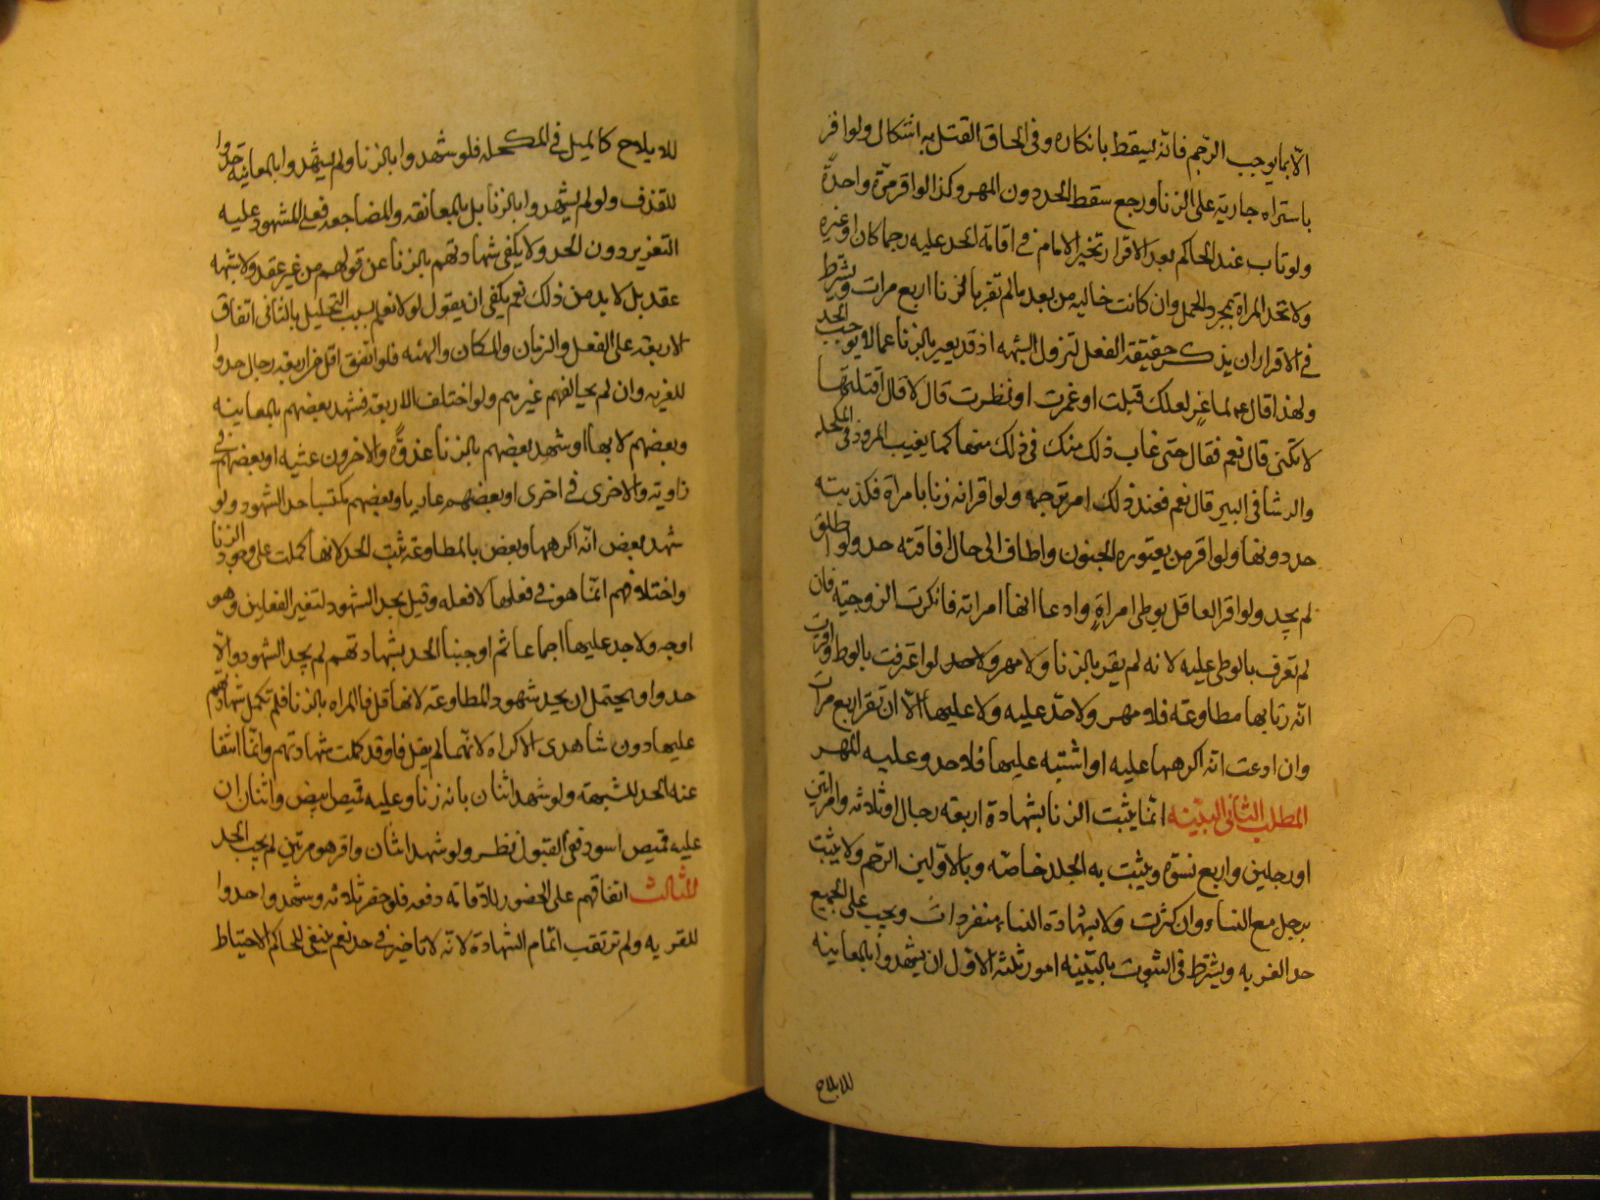 الا بما يوجب الرجم فانه يسقط بانكاره وفى الحاق القتل به اشكال ولو اقر
باستكراه جارية على الزنا ورجع سقط الحد دون المهر وكذا لو اقر مرة واحدة
ولو تاب عند الحاكم بعد الاقرار تخير الامام فى اقامة الحد عليه رجما كان او غيره
ولا تحد المراة بمجرد الحمل وان كانت خاليه من بعد ما لم تقر بالزنا اربع مرات ويشترط
فى الاقرار ان يذكر حقيقة الفعل لتزول الشبهه اذ قد يعبر بالزنا عما لا يوجب الحد
ولهذا قال ع لماعز لعلك قبلت او غمزت او نظرت قال لا قال افنكتها
لا تكنى قال نعم فقال حتى غاب ذلك منك فى ذلك منها كما يغيب المرود فى المكحله
والرشا فى البير قال نعم فعند ذلك امر برجمه ولو اقر انه زنا بامراة فكذبته
حد دونها ولو اقر من يعتوره الجنون واضاف الى حال افاقته حد ولو اطلق
لم يحد ولو اقر العاقل بوطى امراةٍ وادعا انها امراته فانكرت الزوجية فان
لم تعرف بالوطى عليه لانه لم يقر بالزنا ولا مهر ولا حد لو اعترفت بالوطى واقرت
انه زنا بها مطاوعة فلا مهر ولا حدّ عليه ولا عليها الا ان تقر اربع مرات
وان ادعت انه اكرهها عليه او اشتبه عليها فلا حد وعليه المهر
المطلب الثانى البيّنه انما يثبت الزنا بشهادة اربعه رجال او ثلاثه وامراتين
او رجلين واربع نسوة ويثبت به الجلد خاصّه وبالاوّلين الرجم ولا يثبت
برجل مع النساء وان كثرت ولا بشهادة النساء منفردات ويجب على الجميع
حد الفريه ويشترط فى الثبوت بالبيّنه امور ثلثه الاول ان يشهدوا بالمعاينه
للايلاج
للايلاج كالميل فى المكحله فلو شهدوا بالزنا ولم يشهدوا بالمعاينه حدوا
للقذف ولو لم يشهدوا بالزنا بل بالمعانقه والمضاجعه فعلى المشهود عليه
التعزير دون الحد ولا يكفى شهادتهم بالزنا عن قولهم من غير عقد ولا شبهه
عقد بل لا بد من ذلك نعم يكفى ان يقول لو لا نعلم سبب التحليل الثانى اتفاق
الاربعه على الفعل والزمان والمكان والهيئه فلو اتفق اقل من اربعه رجال حدوا
للفريه وان لم يخالفهم غيرهم ولو اختلف الاربعه فشهد بعضهم بالمعاينه
وبعضهم لا بها او شهد بعضهم بالزنا غدوةً والاخرون عشيه او بعضهم فى
زاوية والاخرى فى اخرى او بعضهم عاريا وبعضهم مكتسيا حد الشهود ولو
شهد بعض انّه اكرهها وبعض بالمطاوعة ثبت الحد لانها كملت على وجود الزنا
واختلافهم انّما هو فى فعلها لا فعله وقيل يحد الشهود لتغير الفعلين وهو
اوجه ولا حد عليها اجماعا ثم اوجبنا الحد بشهادتهم لم يحد الشهود والا
حدوا ويحتمل ان يحد شهود المطاوعة لانهما قذفا المراه بالزنا فلم تكمل شهادتهم
عليها دون شاهدى الاكراه لانّهما لم يقذفا وقد كملت شهادتهم وانما انتفا
عنه الحد للشبهة ولو شهد اثنان بانه زنا وعليه قميص ابيض واثنان ان
عليه قميص اسود فى القبول نظر ولو شهد اثنان واقر هو مرتين لم يجب الحد
الثالث اتفاقهم على الحضور للاقامة دفعه فلو حضر ثلاثه وشهدوا حدوا
للفريه ولم نرتقب اتمام الشهادة لانه لا تاخير فى حد نعم ينبغى للحاكم الاحتياط